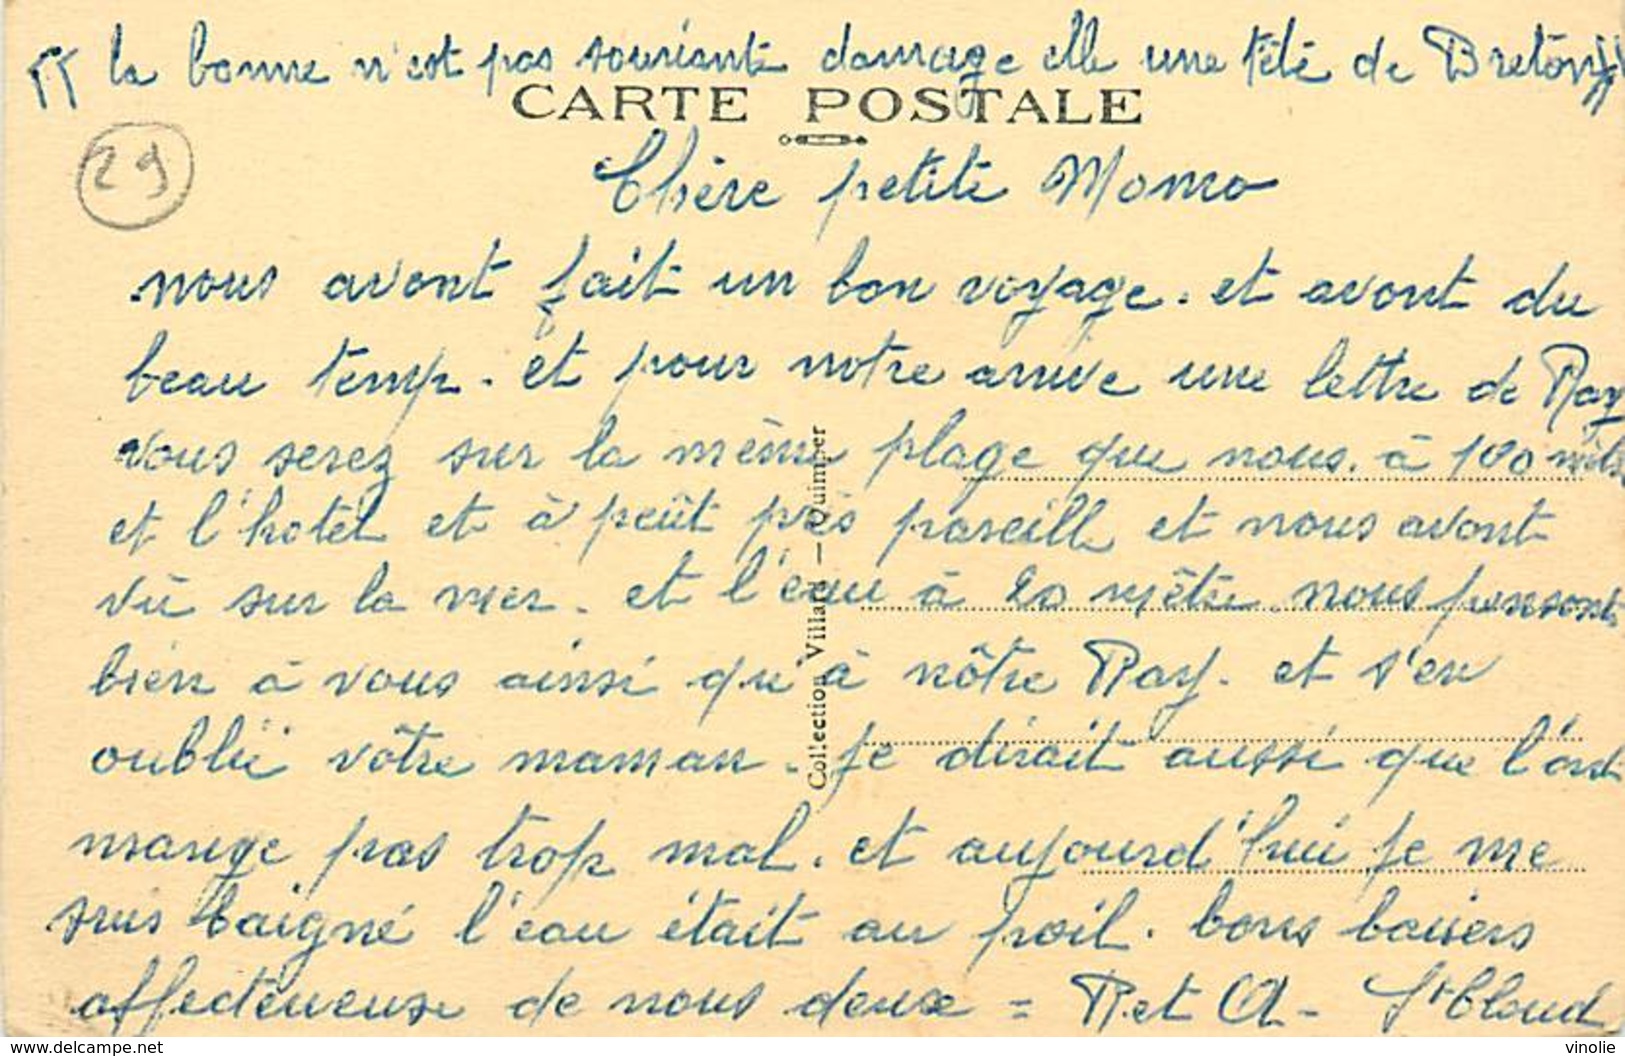 " la bonne n'est pas souriante damage elle une tété de Breton "
CARTE POSTALE
29
Chère petite Momo
nous avont fait un bon voyage. et avont du
beau temp. et pour notre arrive une lettre de Ray
vous serez sur la même plage que nous. à 100
et l'hotel et à peût près pareille et nous avont
vû sur la mer. et l'eau à 20 mêtre. nous pensont
bien à vous ainsi qu'à nôtre Ray. et s'en
oublié vôtre maman. je dirait aussi que l'ont
mange pas trop mal. et aujourd'hui je me
suis baigné l'eau était au poil. bons baisers
affectueuse de nous deux = R et A - St Cloud
Collection Villard - Quimper
vinolie
www.delcampe.net